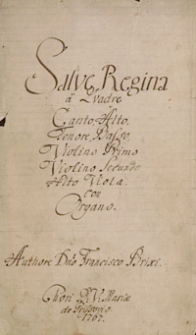 Salve Regina
à Quadro
Canto, Alto,
Tenore, Basso,
Violino Primo
Violino Secundo
Alto Viola.
con
Organo.
Authore Dño Francisco Brixi.
Chori
de
1767.